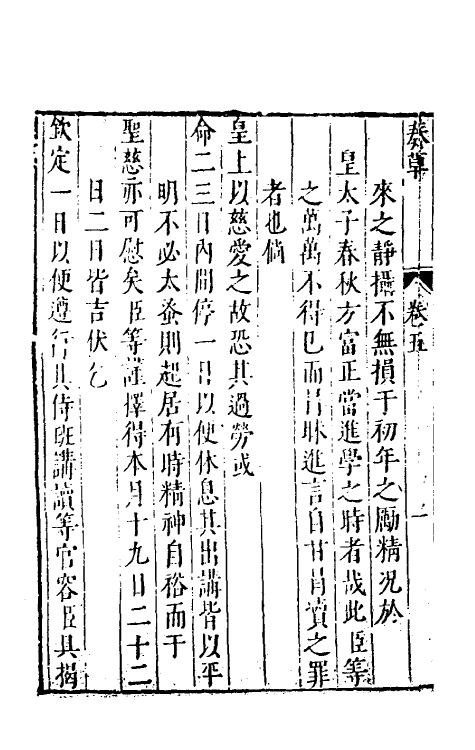 奏草　卷五　一
來之靜攝不無損于初年之勵精況於
皇太子春秋方富正當進學之時者哉此臣等
之萬萬不得已而冒昧進言自甘冐瀆之罪
者也倘
皇上以慈愛之故恐其過勞或
命二三日內間停一日以便休息其出講皆以平
明不必太蚤則起居有時精神自裕而于
聖慈亦可慰矣臣等謹擇得本月十九日二十二
日二日皆吉伏乞
欽定一日以便遵行其侍班講讀等官容臣具揭